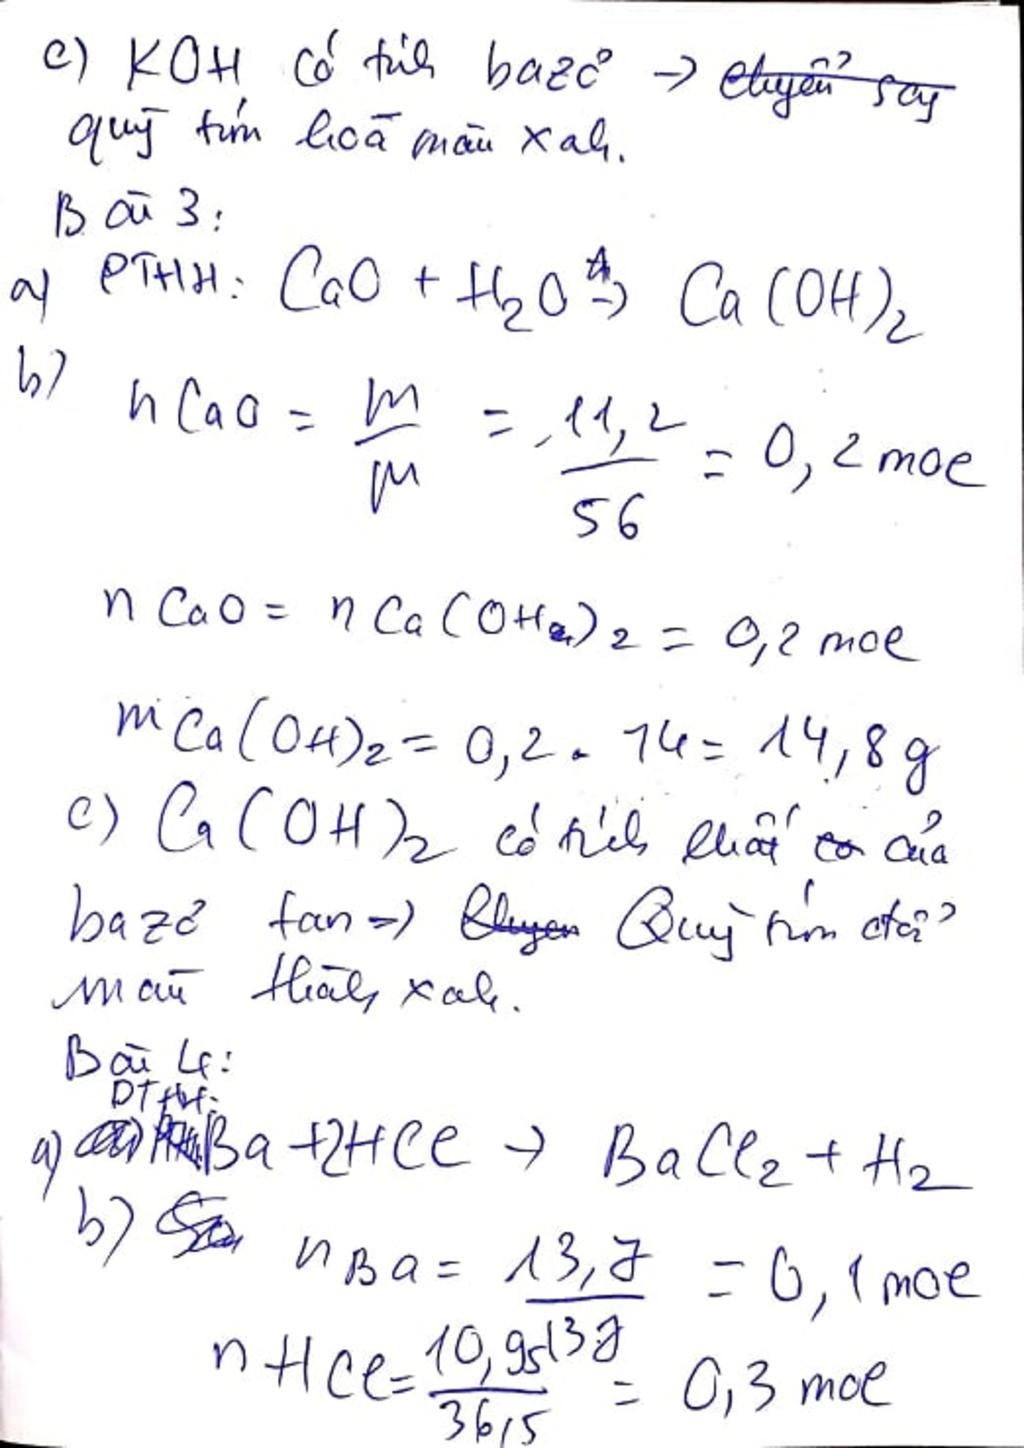 c) KOH có tính bazơ → chuyển sag
quỳ tím hoá màu xah.
Bài 3:
a) PTHH: CaO + H2O → Ca(OH)2
b)
nCaO = m/M = 11,2/56 = 0,2 mol
nCaO = nCa(OH)2 = 0,2 mol
mCa(OH)2 = 0,2 . 74 = 14,8g
c) Ca(OH)2 có tính chất của
bazơ tan => Quỳ tím đổi
màu thành xah.
Bài 4:
PTHH:
a) Ba + 2HCl → BaCl2 + H2
b) nBa = 13,7/137 = 0,1 mol
nHCl = 10,95/36,5 = 0,3 mol